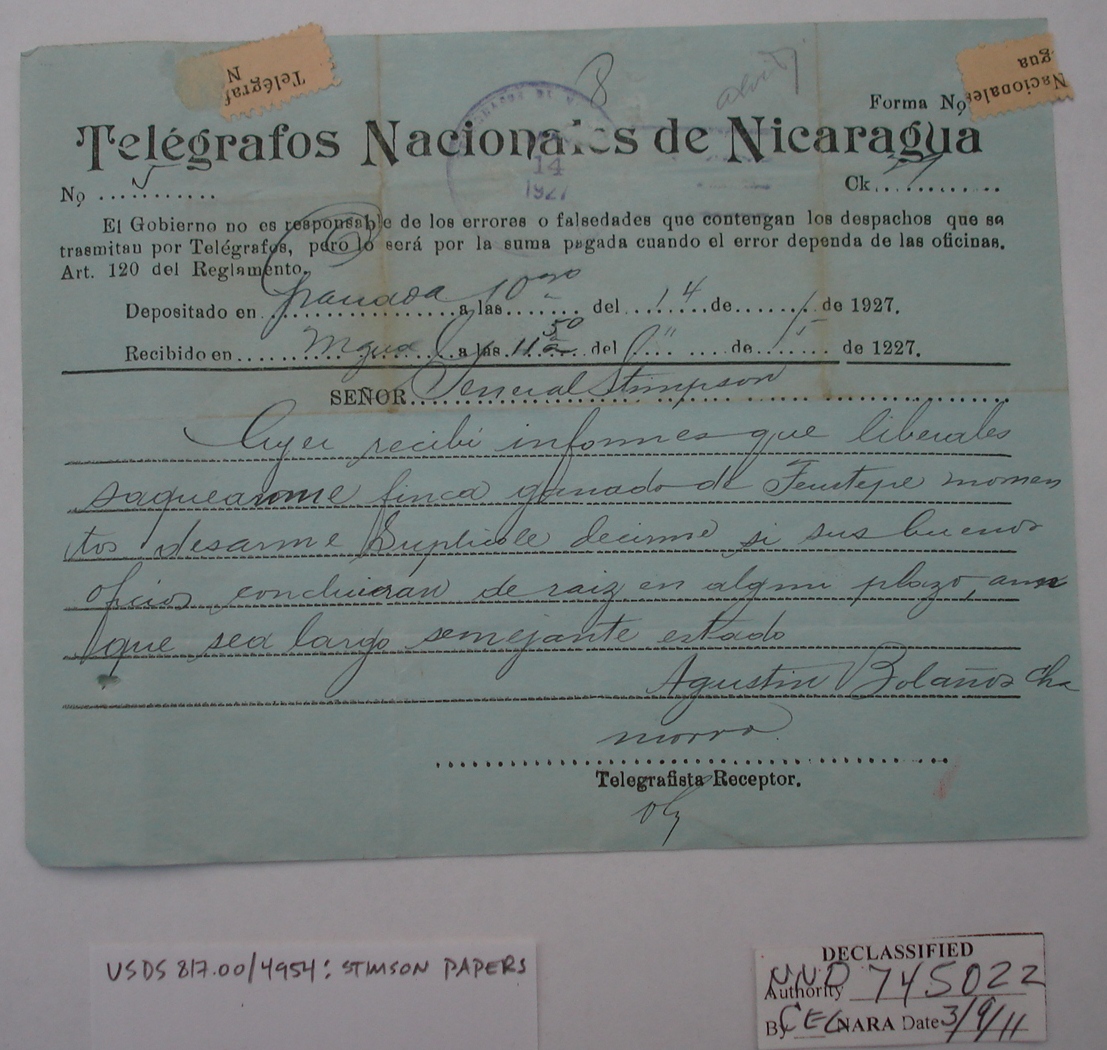 Telégraf
N
Nacionales
gua
8
Forma No
Telégrafos Nacionales de Nicaragua
14
1927
No ............
Ck. ............
El Gobierno no es responsable de los errores o falsedades que contengan los despachos que se
trasmitan por Telégrafos, pero lo será por la suma pagada cuando el error dependa de las oficinas.
Art. 120 del Reglamento.
Depositado en Granada a las 10 del 14 de 5 de 1927.
Recibido en Mgua a las 11 50 del de de 1227.
SEÑOR General Stimpson
Ayer recibí informes que liberales
saquearonme finca ganado de Teustepe momen
tos desarme Suplícole decirme si sus buenos
oficios concluirán de raiz en algun plazo, aun
que sea largo semejante estado
Agustin Bolaños Cha
morro.
Telegrafista Receptor.
USDS 817.00/4954: STIMSON PAPERS
DECLASSIFIED
Authority NND 745022
By CEC NARA Date 3/9/11